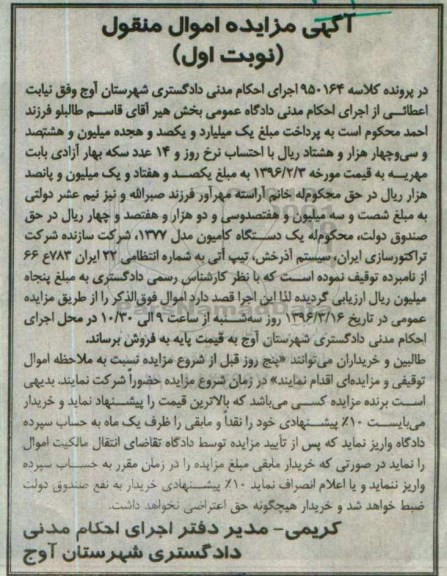 آگهی مزایده اموال منقول
(نوبت اول)
در پرونده کلاسه ۹۵۰۱۶۴ اجرای احکام مدنی دادگستری شهرستان آوج وفق نیابت
اعطائی از اجرای احکام مدنی دادگاه عمومی بخش هیر آقای قاسم طالبلو فرزند
احمد محکوم است به پرداخت مبلغ یک میلیارد و یکصد و هجده میلیون و هشتصد
و سی‌وچهار هزار و هشتاد ریال با احتساب نرخ روز و ۱۴ عدد سکه بهار آزادی بابت
مهریه به قیمت مورخه ۱۳۹۶/۲/۳ به مبلغ یکصد و هفتاد و یک میلیون و پانصد
هزار ریال در حق محکوم‌له خانم آراسته مهرآور فرزند صبرالله و نیز نیم عشر دولتی
به مبلغ شصت و سه میلیون و هفتصدوسی و دو هزار و هفتصد و چهار ریال در حق
صندوق دولت، محکوم‌له یک دستگاه کامیون مدل ۱۳۷۷، شرکت سازنده شرکت
تراکتورسازی ایران، سیستم آذرخش، تیپ آتی به شماره انتظامی ۲۲ ایران ۷۸۳ع ۶۶
از نامبرده توقیف نموده است که با نظر کارشناس رسمی دادگستری به مبلغ پنجاه
میلیون ریال ارزیابی گردیده لذا این اجرا قصد دارد اموال فوق‌الذکر را از طریق مزایده
عمومی در تاریخ ۱۳۹۶/۳/۱۶ روز سه‌شنبه از ساعت ۹ الی ۱۰/۳۰ در محل اجرای
احکام مدنی دادگستری شهرستان آوج به قیمت پایه به فروش برساند.
طالبین و خریداران می‌توانند «پنج روز قبل از شروع مزایده نسبت به ملاحظه اموال
توقیفی و مزایده‌ای اقدام نمایند» در زمان شروع مزایده حضوراً شرکت نمایند. بدیهی
است برنده مزایده کسی می‌باشد که بالاترین قیمت را پیشنهاد نماید و خریدار
می‌بایست ۱۰٪ پیشنهادی خود را نقداً و مابقی را ظرف یک ماه به حساب سپرده
دادگاه واریز نماید که پس از تأیید مزایده توسط دادگاه تقاضای انتقال مالکیت اموال
را نماید در صورتی که خریدار مابقی مبلغ مزایده را در زمان مقرر به حساب سپرده
واریز ننماید و یا اعلام انصراف نماید ۱۰٪ پیشنهادی خریدار به نفع صندوق دولت
ضبط خواهد شد و خریدار هیچگونه حق اعتراضی نخواهد داشت.
کریمی- مدیر دفتر اجرای احکام مدنی
دادگستری شهرستان آوج